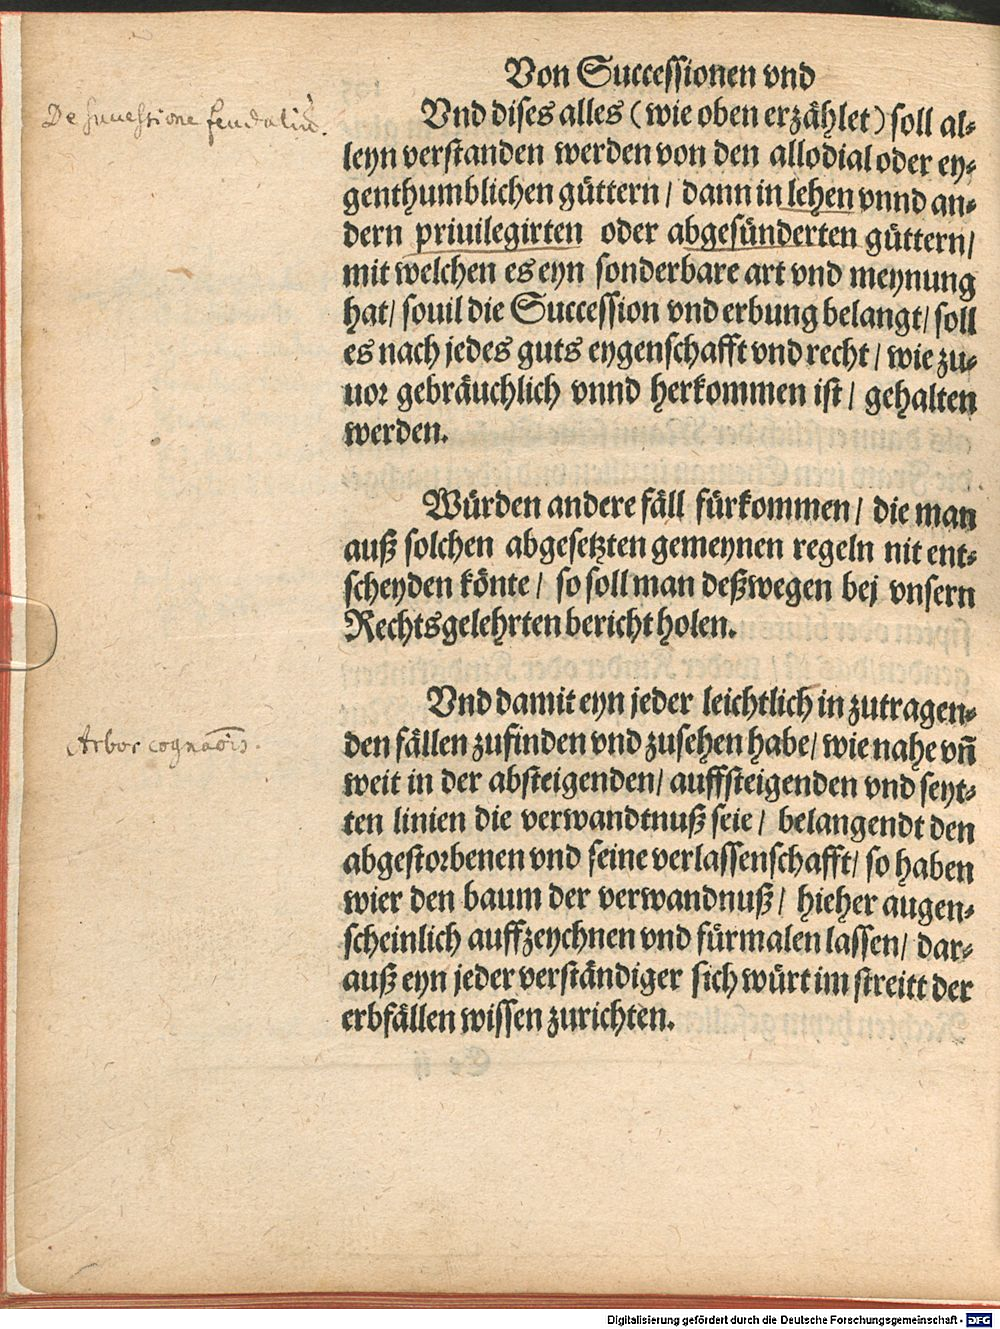 Von Successionen vnd
De successione feudaliũ.
Vnd dises alles (wie oben erzählet) soll al-
leyn verstanden werden von den allodial oder ey-
genthumblichen güttern / dann in lehen vnnd an-
dern priuilegirten oder abgesünderten güttern /
mit welchen es eyn sonderbare art vnd meynung
hat / souil die Succession vnd erbung belangt / soll
es nach jedes guts eygenschafft vnd recht / wie zu-
uor gebräuchlich vnnd herkommen ist / gehalten
werden.
Würden andere fäll fürkommen / die man
auß solchen abgesetzten gemeynen regeln nit ent-
scheyden könte / so soll man deßwegen bej vnsern
Rechtsgelehrten bericht holen.
Vnd damit eyn jeder leichtlich in zutragen-
Arbor cognaõis.
den fällen zufinden vnd zusehen habe / wie nahe vñ
weit in der absteigenden / auffsteigenden vnd seyt-
ten linien die verwandtnuß seie / belangendt den
abgestorbenen vnd seine verlassenschafft / so haben
wier den baum der verwandnuß / hieher augen-
scheinlich auffzeychnen vnd fürmalen lassen / dar-
auß eyn jeder verständiger sich würt im streitt der
erbfällen wissen zurichten.
Digitalisierung gefördert durch die Deutsche Forschungsgemeinschaft - DFG